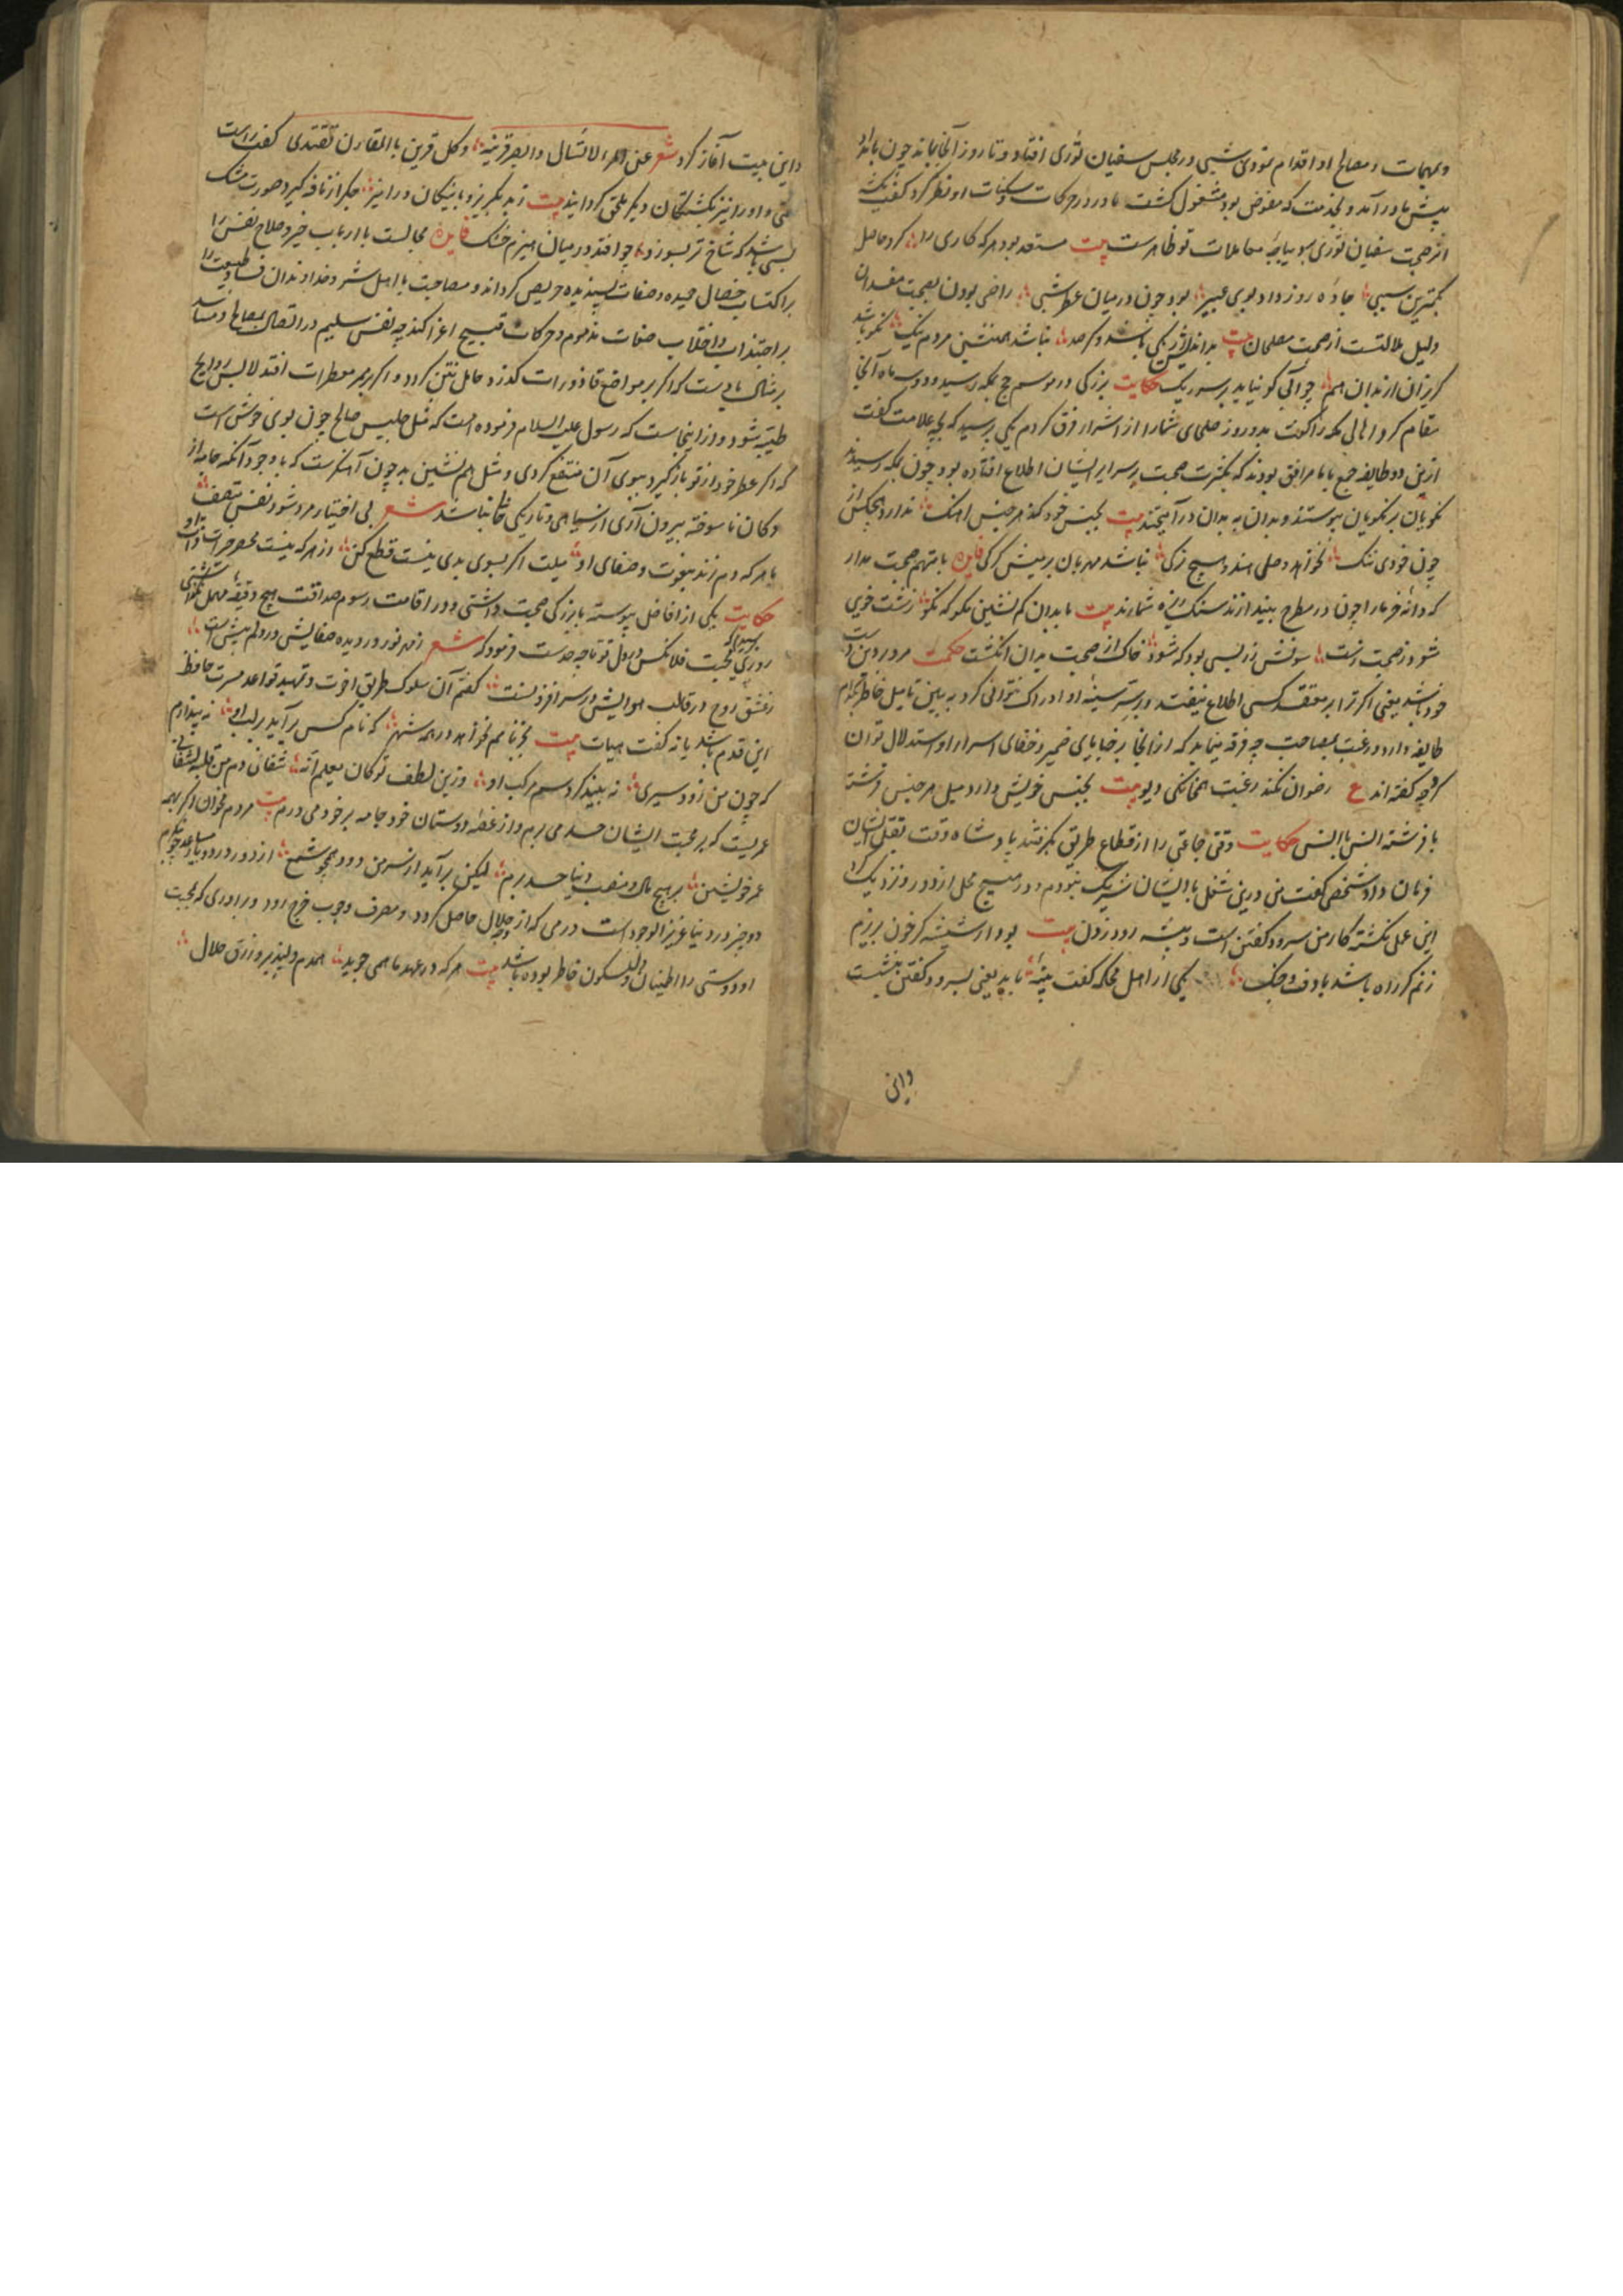 ومهمات و مصالح او اقدام نمودی شبی در مجلس سفیان ثوری افتاد و تا روز آنجا بماند چون بامداد
پیش ما در آمد و بخدمت که مفوض بود مشغول گشت ما در در حرکات و سکنات او نظر کرد گفت
اثر صحبت سفیان ثوری بر معاملات تو ظاهرست بیت مستعد بود هر که کاری را کرد حاصل
بکمترین سببی جاده روز داد بوی عبیر بود چون در میان عطر شبی راضی بودن بصحبت مفسدان
دلیل ملالتست از صحبت مصلحان بیت بد اندیش نباشد همنشین مردم نیک نکو باشد
گریزان از بدان هم چو آبی کو نیاید بر سر ریک حکایت بزرگی در موسم حج بمکه رسید و دو سه ماه آنجا
مقام کرد اهالی مکه را گفت بدو روز صلحای شما را از اشرار فرق کردم یکی پرسید که بچه علامت گفت
ازین دو طایفه جمع با ما مرافق بودند که بکثرت صحبت بر سرایر ایشان اطلاع افتاده بود چون بمکه رسیدند
نکویان بر نکویان پیوستند و بدان به بدان در آمیختند بیت بجنس خود کند هر جنس آهنگ ندارد هیچکس از
چون خودی ننگ نخواهد وصلی هندو هیچ زنگی نباشد مهربان بر میش گرگی فایده با متهم صحبت مدار
که دانه خرما را چون در مطرح بیند از نرد سنک ریزه شمارند بیت با بدان کم نشین مگو که نکو زشت خوی
شود ز صحبت زشت سونش زر بسی بود که شود خاک از صحبت بدان انگشت حکمت مرد بر دین دوست
خود باشد یعنی اگر ترا بر معتقد کسی اطلاع نیفتد و بر ستر سینه او ادراک نتوانی کرد به بین تا میل خاطر بکدام
طایفه دارد و رغبت بمصاحبت چه فرقه مینماید که از آنجا بر خبایای ضمیر و خفای اسرار او استدلال توان
کرد چه گفته اند ع رضوان نکند رغبت همخانگی دیو بیت بجنس خویش دارد میل هر جنس فرشته
با فرشته انس با انس حکایت وقتی جماعتی را از قطاع طریق بگرفتند پادشاه وقت بقتل ایشان
فرمان داد شخصی گفت من درین شغل با ایشان شریک نبودم و در هیچ محل از دور و نزدیک گرد
این عمل نگشته کار من سرود گفتن است و پیشه رود زدن بیت بود ار شیشه گر خون بریزم
زنم کرده باشد با دف و چنگ یکی از اهل محاکمه گفت بینه باید یعنی بسرود گفتن بنشست
و این
و این بیت آغاز کرد شعر عن المرء لا تسأل و ابصر قرینه و کل قرین بالمقارن تقتدی گفت راست
و او را نیز بکشتگان دیگر ملحق گردانید بیت ز بد بگریز و با نیکان در آمیز جگر از نافه گیرد صورت مشک
بسی باشد که شاخ تر بسوزد چو افتد در میان هیزم خشک فایده مجالست با ارباب خیر و صلاح نفس را
بر اکتساب خصال حمیده و صفات پسندیده حریص گرداند و مصاحبت با اهل شر و خداوندان فساد طبیعت را
بر اجتذاب و اختلاب صفات مذموم و حرکات قبیح اغرا کند چه نفس سلیم در اتصال بمصالح و مفاسد
بر مثال بادیست که اگر بر مواضع قاذورات گذرد حامل نتن گردد و اگر بر معطرات افتد لابس روایح
طیبه شود و از اینجاست که رسول علیه السلام فرموده است که مثل جلیس صالح چون بوی خوش است
که اگر عطر خود از تو باز گیرد ببوی آن منتفع گردی و مثل هم نشین بد چون آهنگرست که با وجود آنکه جامه از
دکان ناسوخته بیرون آری از سیاهی و تاریکی خالی نباشد شعر بی اختیار مرد شود نفس متصف
با هر که دم زند بنعوت و صفای او میلت اگر بسوی بدی نیست قطع کن
حکایت یکی از افاضل پیوسته با بزرگی صحبت داشتی و در اقامت رسوم صداقت هیچ دقیقه مهمل نگذاشتی
روزی پرسید که محبت فلانکس در دل تو تا چه حدست فرمود که شعر زهر نور در دیده صفایش در دلم بیش است
ز عشق روح در قالب هوایش در سر افزونست گفتم آن سلوک طریق اخوت و تمهید قواعد مسرت حافظ
این قدم باشد یا نه گفت هیهات بیت بجز نامم نخواهد در همه شهر که نام کس بر آید بر لب او نه بپندارم
که چون من زود سیری نه ببیند گرد سم مرکب او وزین لطف تو کان معلم آنه
عمریست که بر محبت ایشان حسد می برم و از غصه دوستان خود جامه بر خود می درم بیت مردم بخوان اگر بهمه
عمر خویشتن بر هیچ مال و منصب دنیا حسد برم لیکن بر آید از سر من دود همچو شمع از دور در دو یار مساعد چو بنگرم
دو چیز در دنیا عزیز الوجود است درمی که از وجه حلال حاصل گردد و مصرف وجوب خرج رود و برادری که بمحبت
او دوستی را اطمینان و سکون خاطر بوده باشد بیت هر که در عهد ما همی جوید همدم دلپذیر و رزق حلال